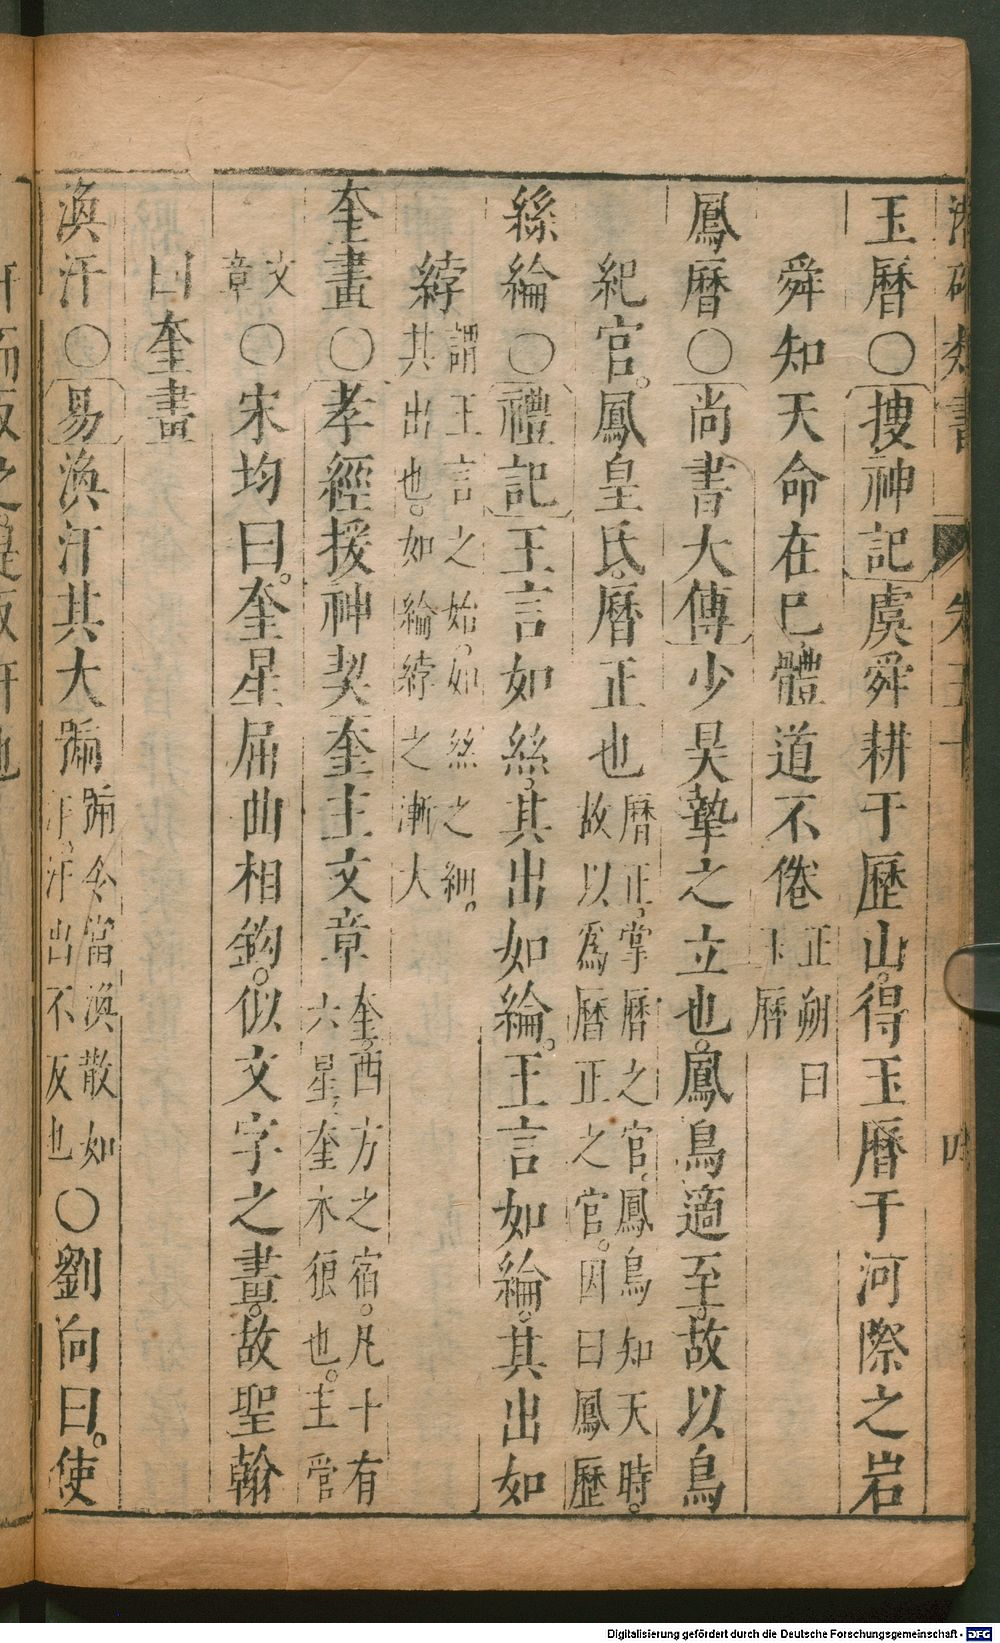 類書 卷五十 四
玉曆〇搜神記虞舜耕于歷山。得玉曆于河際之岩
舜知天命在巳體道不倦正朔曰玉曆
鳳曆〇尚書大傳少昊摯之立也。鳳鳥適至。故以鳥
紀官。鳳皇氏。曆正也曆正。掌曆之官。鳳鳥知天時。故以爲曆正之官。因曰鳳歷
絲綸〇禮記王言如絲。其出如綸。王言如綸。其出如
綍謂王言之始。如絲之細。其出也。如綸綍之漸大
奎畫〇孝經援神契奎主文章奎。西方之宿。凡十有六星。奎木狼也。主管
文章〇宋均曰。奎星屈曲相鈎。似文字之畫。故聖翰
曰奎畫
渙汗〇易渙汗其大號號令當渙散如汗。汗出不反也〇劉向曰。使
Digitalisierung gefördert durch die Deutsche Forschungsgemeinschaft - DFG